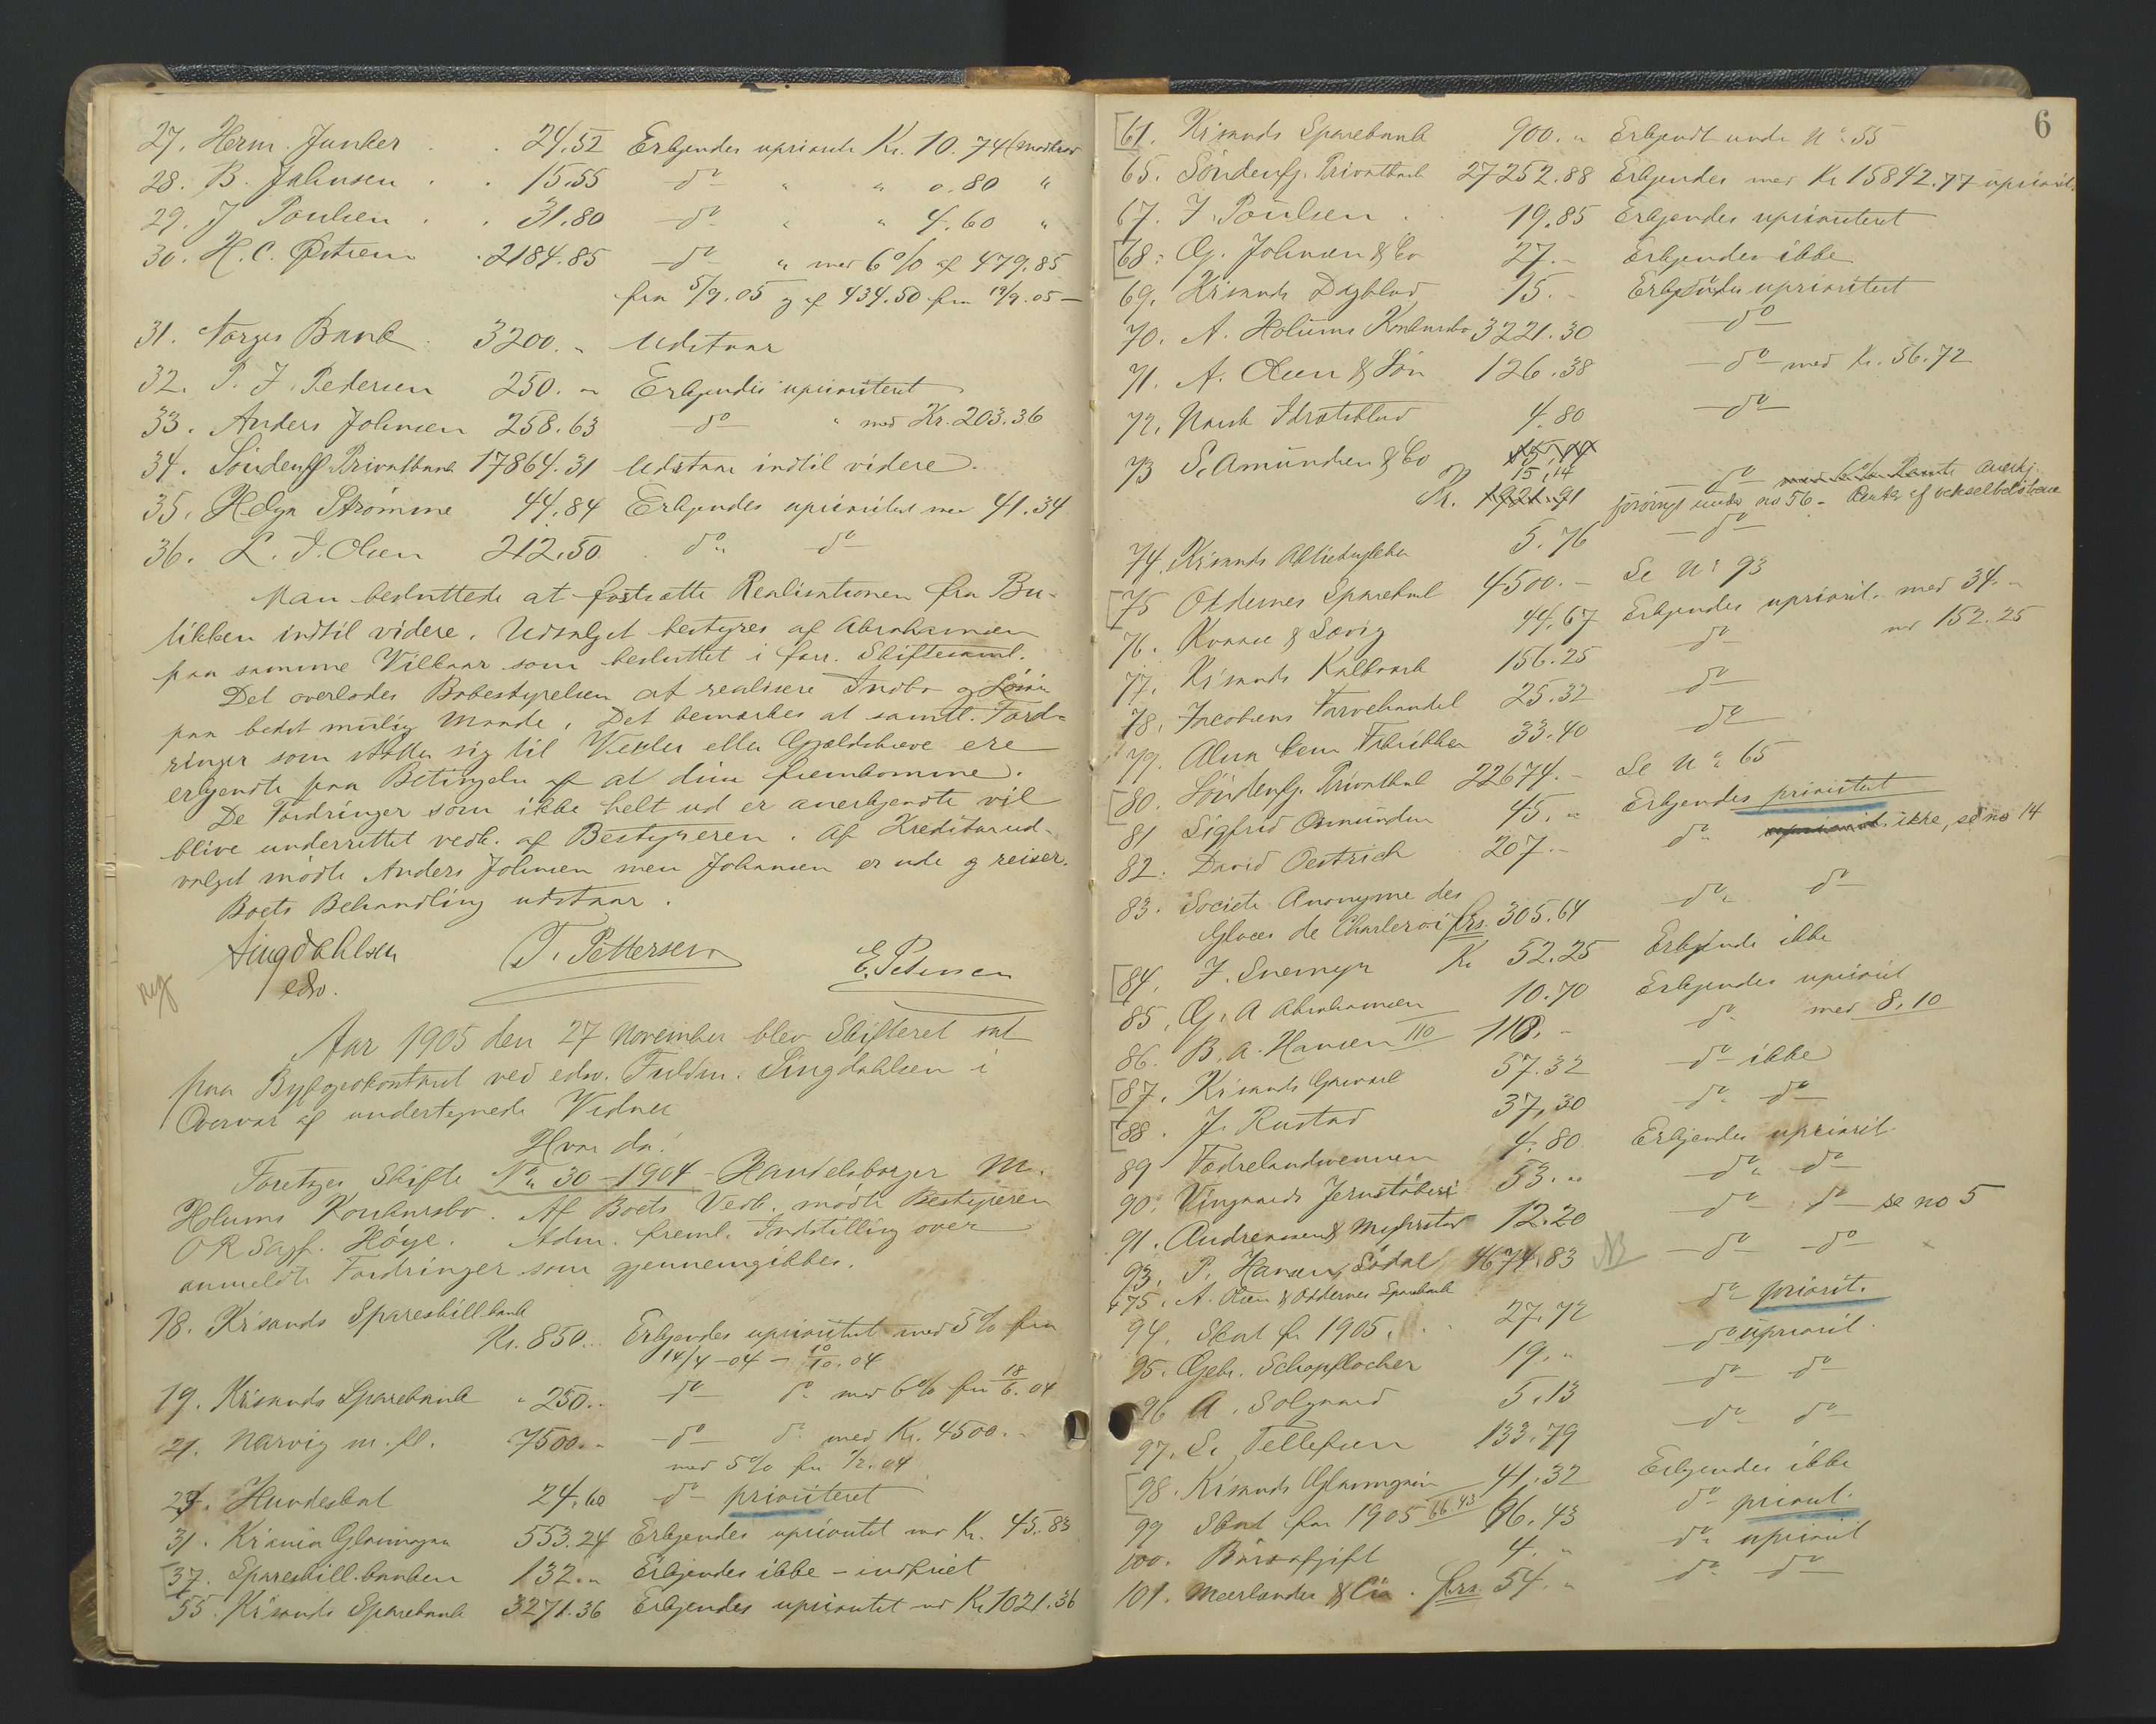 27. Herm. Junker . . 24.52 Erkjendes upriorit. Kr. 10.74 (Modkrav
28. B. Johnsen . . 15.55 do " " 0.80 "
29. J Poulsen . . 31.80 do " " 4.60 "
30. H. C. Østrem . 2184.85 do " med 6% af 479.85
fra 5/9.05 og af 434.50 fra 19/9.05 —
31. Norges Bank . 3200. " Udstaar
32. P. J. Pedersen 250. " Erkjendes uprioriteret
33. Anders Johnsen 258.63 do " med Kr. 203.36
34. Söndenfj. Privatbank 17864.31 Udstaar indtil videre.
35. Helga Strömme 44.84 Erkjendes uprioritert med 41.34
36. L. J. Olsen 212.50 do do
Man besluttede at fortsætte Realisationen fra Bu-
tikken indtil videre. Udsalget bestyres af Abrahamsen
paa samme Vilkaar som besluttet i forr. Skiftesaml.
Det overlodes Bobestyrelsen at realisere Indbo og Lösöre
paa bedst mulig Maade. Det bemærkes at samtl. Ford-
ringer som støtter sig til Vexler eller Gjældsbreve ere
erkjendte paa Betingelse af at disse fremkomme.
De Fordringer som ikke helt ud er anerkjendte vil
blive underrettet vedk. af Bestyreren. Af Kreditorud-
valget mödte Anders Johnsen men Johansen er ude og reiser.
Boets Behandling udstaar.
Singdahlsen T. Pettersen E. Petersen
edsv.
Aar 1905 den 27 November blev Skifteret sat
paa Byfogedkontoret ved edsv. Fuldm. Singdahlsen i
Overvær af undertegnede Vidner
Hvor da:
Foretoges Skifte No 30 - 1904 - Handelsborger M.
Holums Konkursbo. Af Boets Vedk. mödte Bestyreren
ORSagf. Höye. Adm. freml. Indstilling over
anmeldte Fordringer som gjennemgikkes.
18. Krsands Spareskill.bank
Kr. 850... Erkjendes uprioritet med 5% fra
14/4 - 04 - 10/10.04
19. Krsands Sparebank " 250.. do do med 6% fra 18/6.04
21. Narvig m. fl. 7500. " do do med Kr. 4500. "
med 5% fra 1/2.04
24. Hundeskat 24.60 do prioriteret
31. Krsania Glasmagasin 553.24 Erkjendes uprioritet med Kr. 45.83
[37. Spareskill.banken 132. " Erkjendes ikke - indfriet
55. Krsands Sparebank 3271.36 Erkjendes uprioritet med Kr 1021.36
6
[61. Krsands Sparebank 900. " Erkjendt under No 55
65. Söndenfj. Privatbank 27252.88 Erkjendes med Kr 15842.77 upriorit.
67. J. Poulsen . 19.85 Erkjendes uprioriteret
[68. G. Johnsen & Co 27. - Erkjendes ikke
69. Krsands Dagblad 15. - Erkjendes uprioritert
70. A. Holums Konkursbo 3221.30 do
71. A. Olsen & Sön 126.38 do med Kr. 56.72
72. Norsk Idrætsblad 4.80 do
73 S. Amundsen & Co 15,14
og 15,14 do med 6% Rente anerkj.
Kr. 1921.91 forövrigt under no 56 - Rente af vekselbelöbene
74. Krsands Aktiebryggeri 5.76 do
[75 Oddernes Sparebank 4500. - Se No 93
76. Kvaase & Lövig 44.67 Erkjendes upriorit. med 34. -
77. Krsands Kulkomp. 156.25 do med 152.25
78. Jacobsens Farvehandel 25.32 do
79. Alna kem. Fabrikker 33.40 do
[80. Söndenfj. Privatbank 22674. - Se No 65
81 Sigfred Amundsen 45. " Erkjendes prioritert
82. David Oestrich 207. - do upriorit. ikke, se no 14
83. Societe Anonyme des
Glaces de Charleroi frs. 305.64 do do
[84. J. Snemyr Kr 52.25 Erkjendes ikke
85. G. A Abrahamsen 10.70 Erkjendes upriorit
86. B. A. Hansen 110 118. - do med 8.10
[87. Krsands Gasværk 57.32 do ikke
[88. J. Rustad 37,30 do do
89 Fædrelandsvennen 4.80 Erkjendes upriorit.
90. Vingaards Jernstöberi 53. " do do
91. Andreassen & Myhrstad 12.20 do do se no 5
93. P. Hansen, Sødal 4674.83 NB do do
+75. A. Olsen & Oddernes Sparebank
94. Skat for 1905. . . 27.72 do priorit.
95. Gebr. Schopflocher 19. " do upriorit.
96 A. Solgaard 5.13 do do
97. S. Tellefsen 133.79 do do
[98. Krsands Glasmagasin 41.32 Erkjendes ikke
99 Skat for 1905 66.43 66.43 do priorit.
100. Börsafgift 4. " do upriorit
101. Meerlander & Cia . frs. 54. " do do